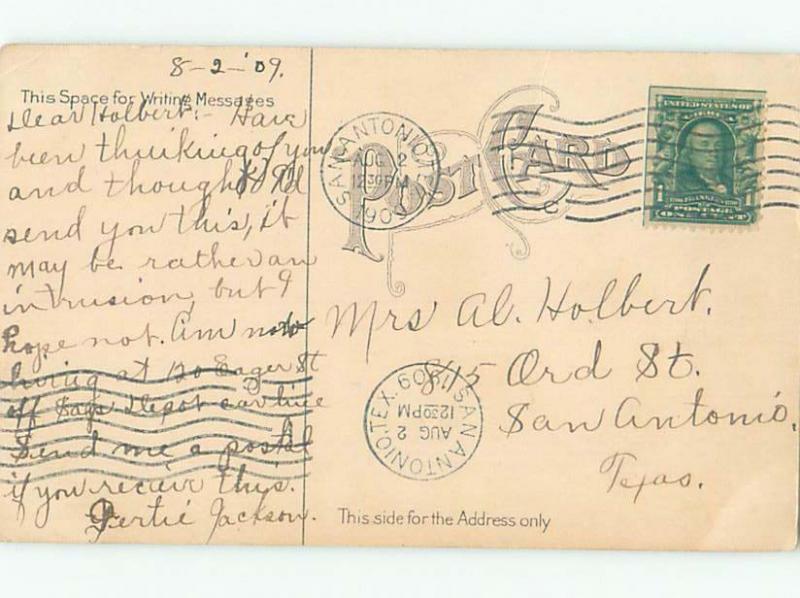 8-2-'09.
This Space for Writing Messages
Dear Holbert:- Have
been thinking of you
and thought I'd
send you this, it
may be rather an
intrusion, but I
hope not. Am now
living at 120 Eager St
off Sags Depot car line
Send me a postal
if you receive this.
Gertie Jackson.
POST CARD
SAN ANTONIO, TEX.
AUG 2
1230PM
1909
UNITED STATES OF
FRANKLIN
POSTAGE
ONE CENT
Mrs Al. Holbert.
815 Ord St.
San Antonio,
Texas.
SAN ANTONIO, TEX.
AUG 2
1230PM
1909
This side for the Address only